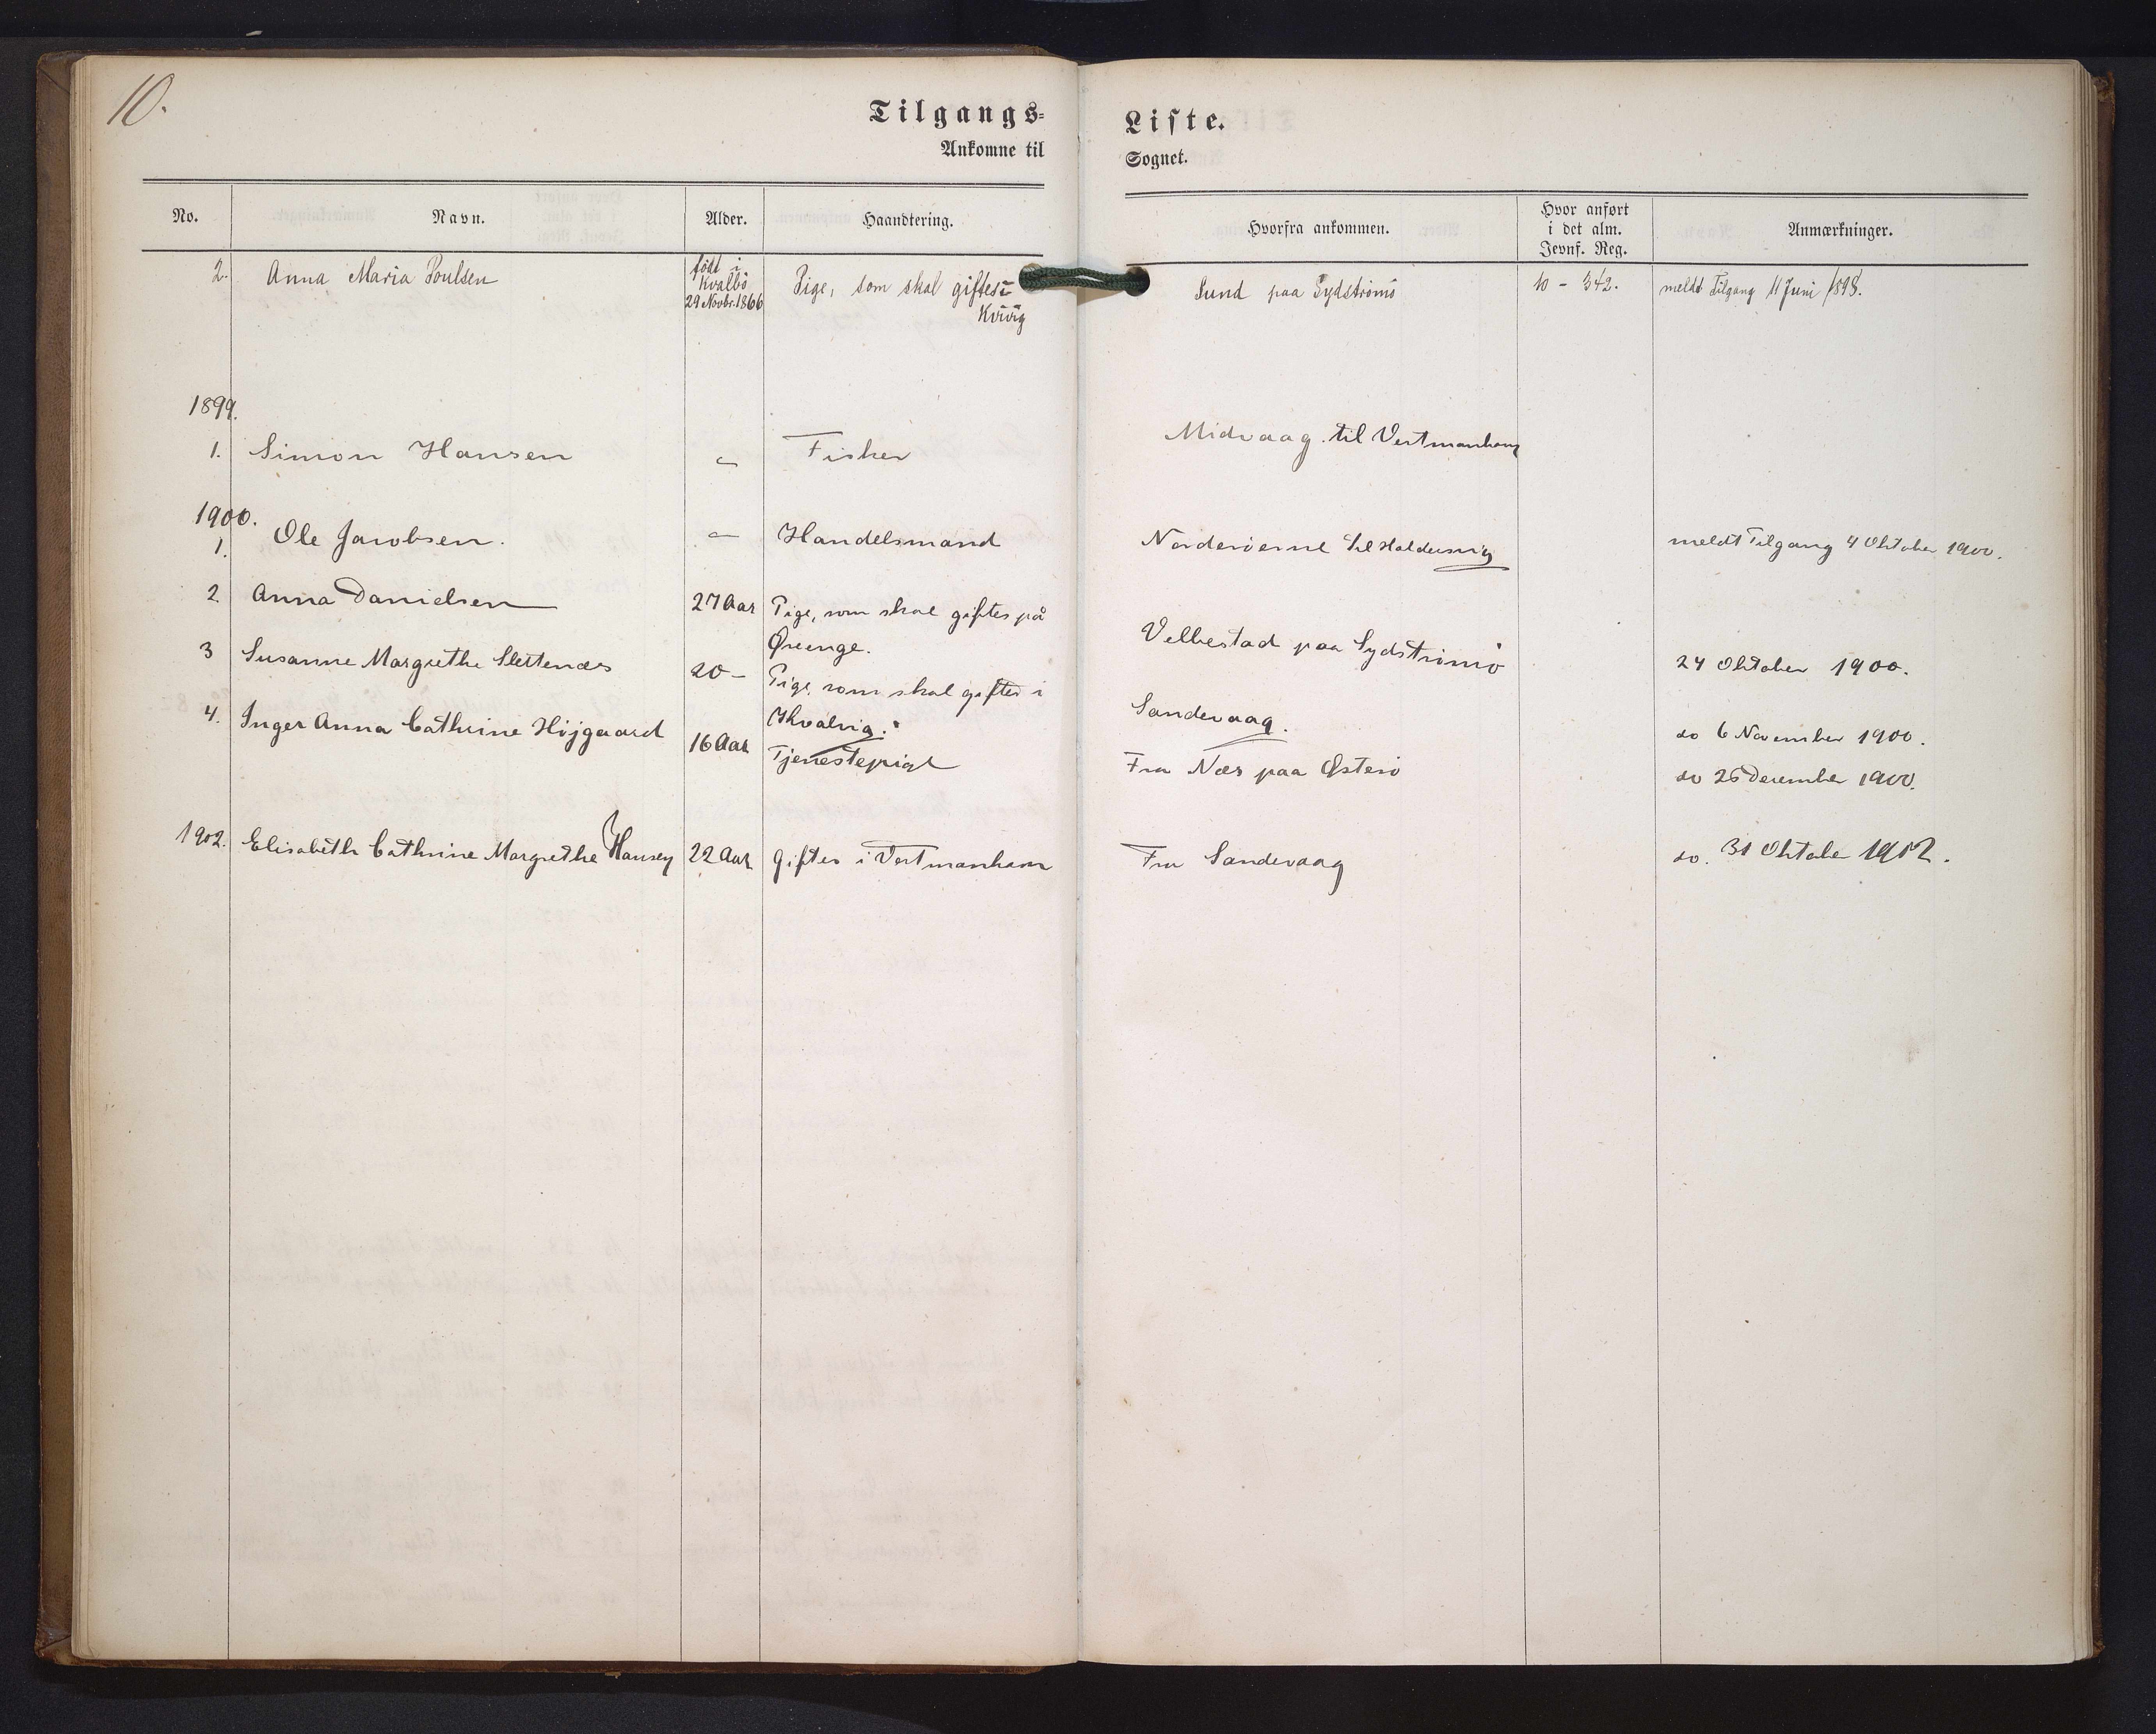 10.
Tilgangs-Liste.
Ankomne til Sognet.
No. Navn. Alder. Haandtering. Hvorfra ankommen. Hvor anført i det alm. Jevnf. Reg. Anmærkninger.
2. Anna Maria Poulsen født i Kvalbö 29 Novbr. 1866 Pige, som skal giftes i Kvivig Sund paa Sydströmö 10 - 342. meldt Tilgang 11 Juni 1898.
1899.
1. Simon Hansen - Fisker Midvaag til Vestmanhavn
1900.
1. Ole Jacobsen. - Handelsmand Norderöerne til Haldersvig meldt Tilgang 4 Oktober 1900.
2. Anna Danielsen 27 Aar Pige, som skal giftes på
Øreenge. Velbestad paa Sydströmö 24 Oktober 1900.
3 Susanne Margrethe Slettenæs 20 - Pige, som skal giftes i
Kvalvig. Sandevaag. do 6 November 1900.
4. Inger Anna Cathrine Höjgaard 16 Aar Tjenestepige Fra Næs paa Østerö do 26 December 1900.
1902. Elisabeth Cathrine Margrethe Hansen 22 Aar giftes i Vestmanhavn Fra Sandevaag do. 31 Oktober 1902.